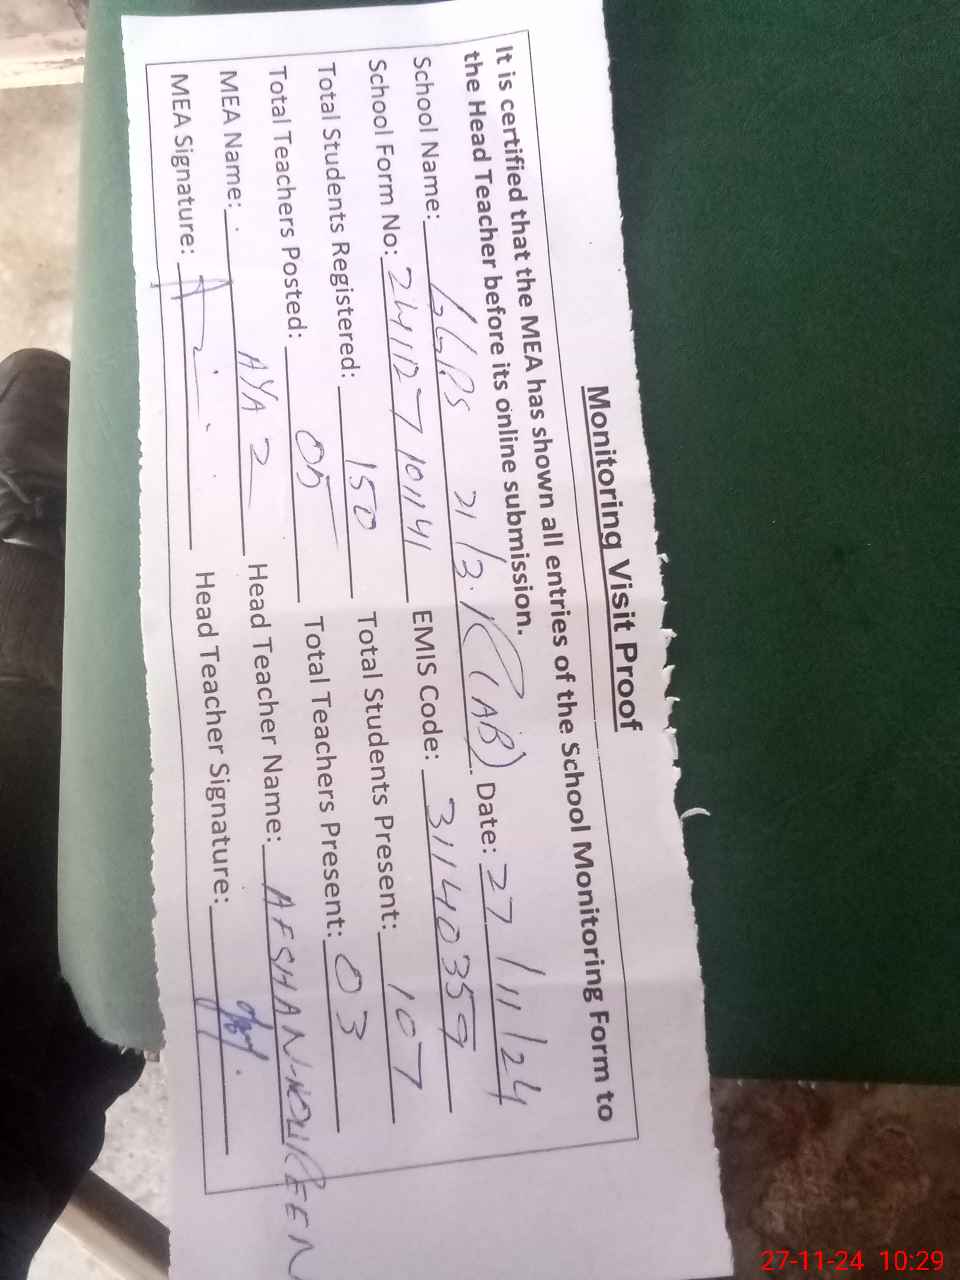 Monitoring Visit Proof
It is certified that the MEA has shown all entries of the School Monitoring Form to
the Head Teacher before its online submission.
School Name: GGPS 21/3.R(AB) Date: 27/11/24
School Form No: 241127101141 EMIS Code: 31140359
Total Students Registered: 150 Total Students Present: 107
Total Teachers Posted: 05 Total Teachers Present: 03
MEA Name: AYAZ Head Teacher Name: AFSHAN NOUREEN
MEA Signature: Head Teacher Signature:
27-11-24 10:29